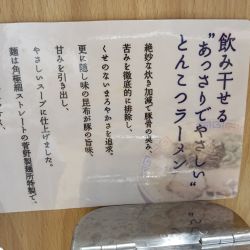 飲み干せる
"あっさりでやさしい"
とんこつラーメン
絶妙な炊き加減で豚骨の臭み、
苦みを徹底的に排除し、
くせのないまろやかさを追求。
更に隠し味の昆布が豚の旨味、
甘みを引き出し、
やさしいスープに仕上げました。
麺は角極細ストレートの菅野製麺所特製で、